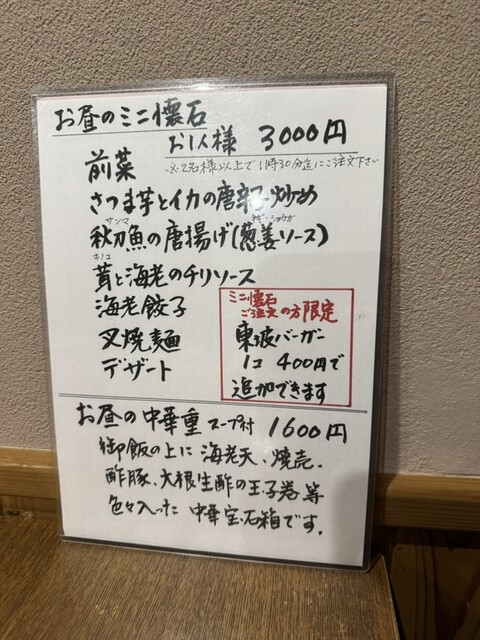 お昼のミニ懐石
お1人様 3000円
※2名様以上で1時30分迄にご注文下さい
前菜
さつま芋とイカの唐辛子炒め
サンマ ネギ・ショウガ
秋刀魚の唐揚げ(葱姜ソース)
キノコ
茸と海老のチリソース
海老餃子
叉焼麺
デザート
ミニ懐石
ご注文の方限定
東坡バーガー
1コ 400円で
追加できます
お昼の中華重 スープ付 1600円
御飯の上に海老天、焼売、
酢豚、大根生酢の玉子巻等
色々入った中華宝石箱です。